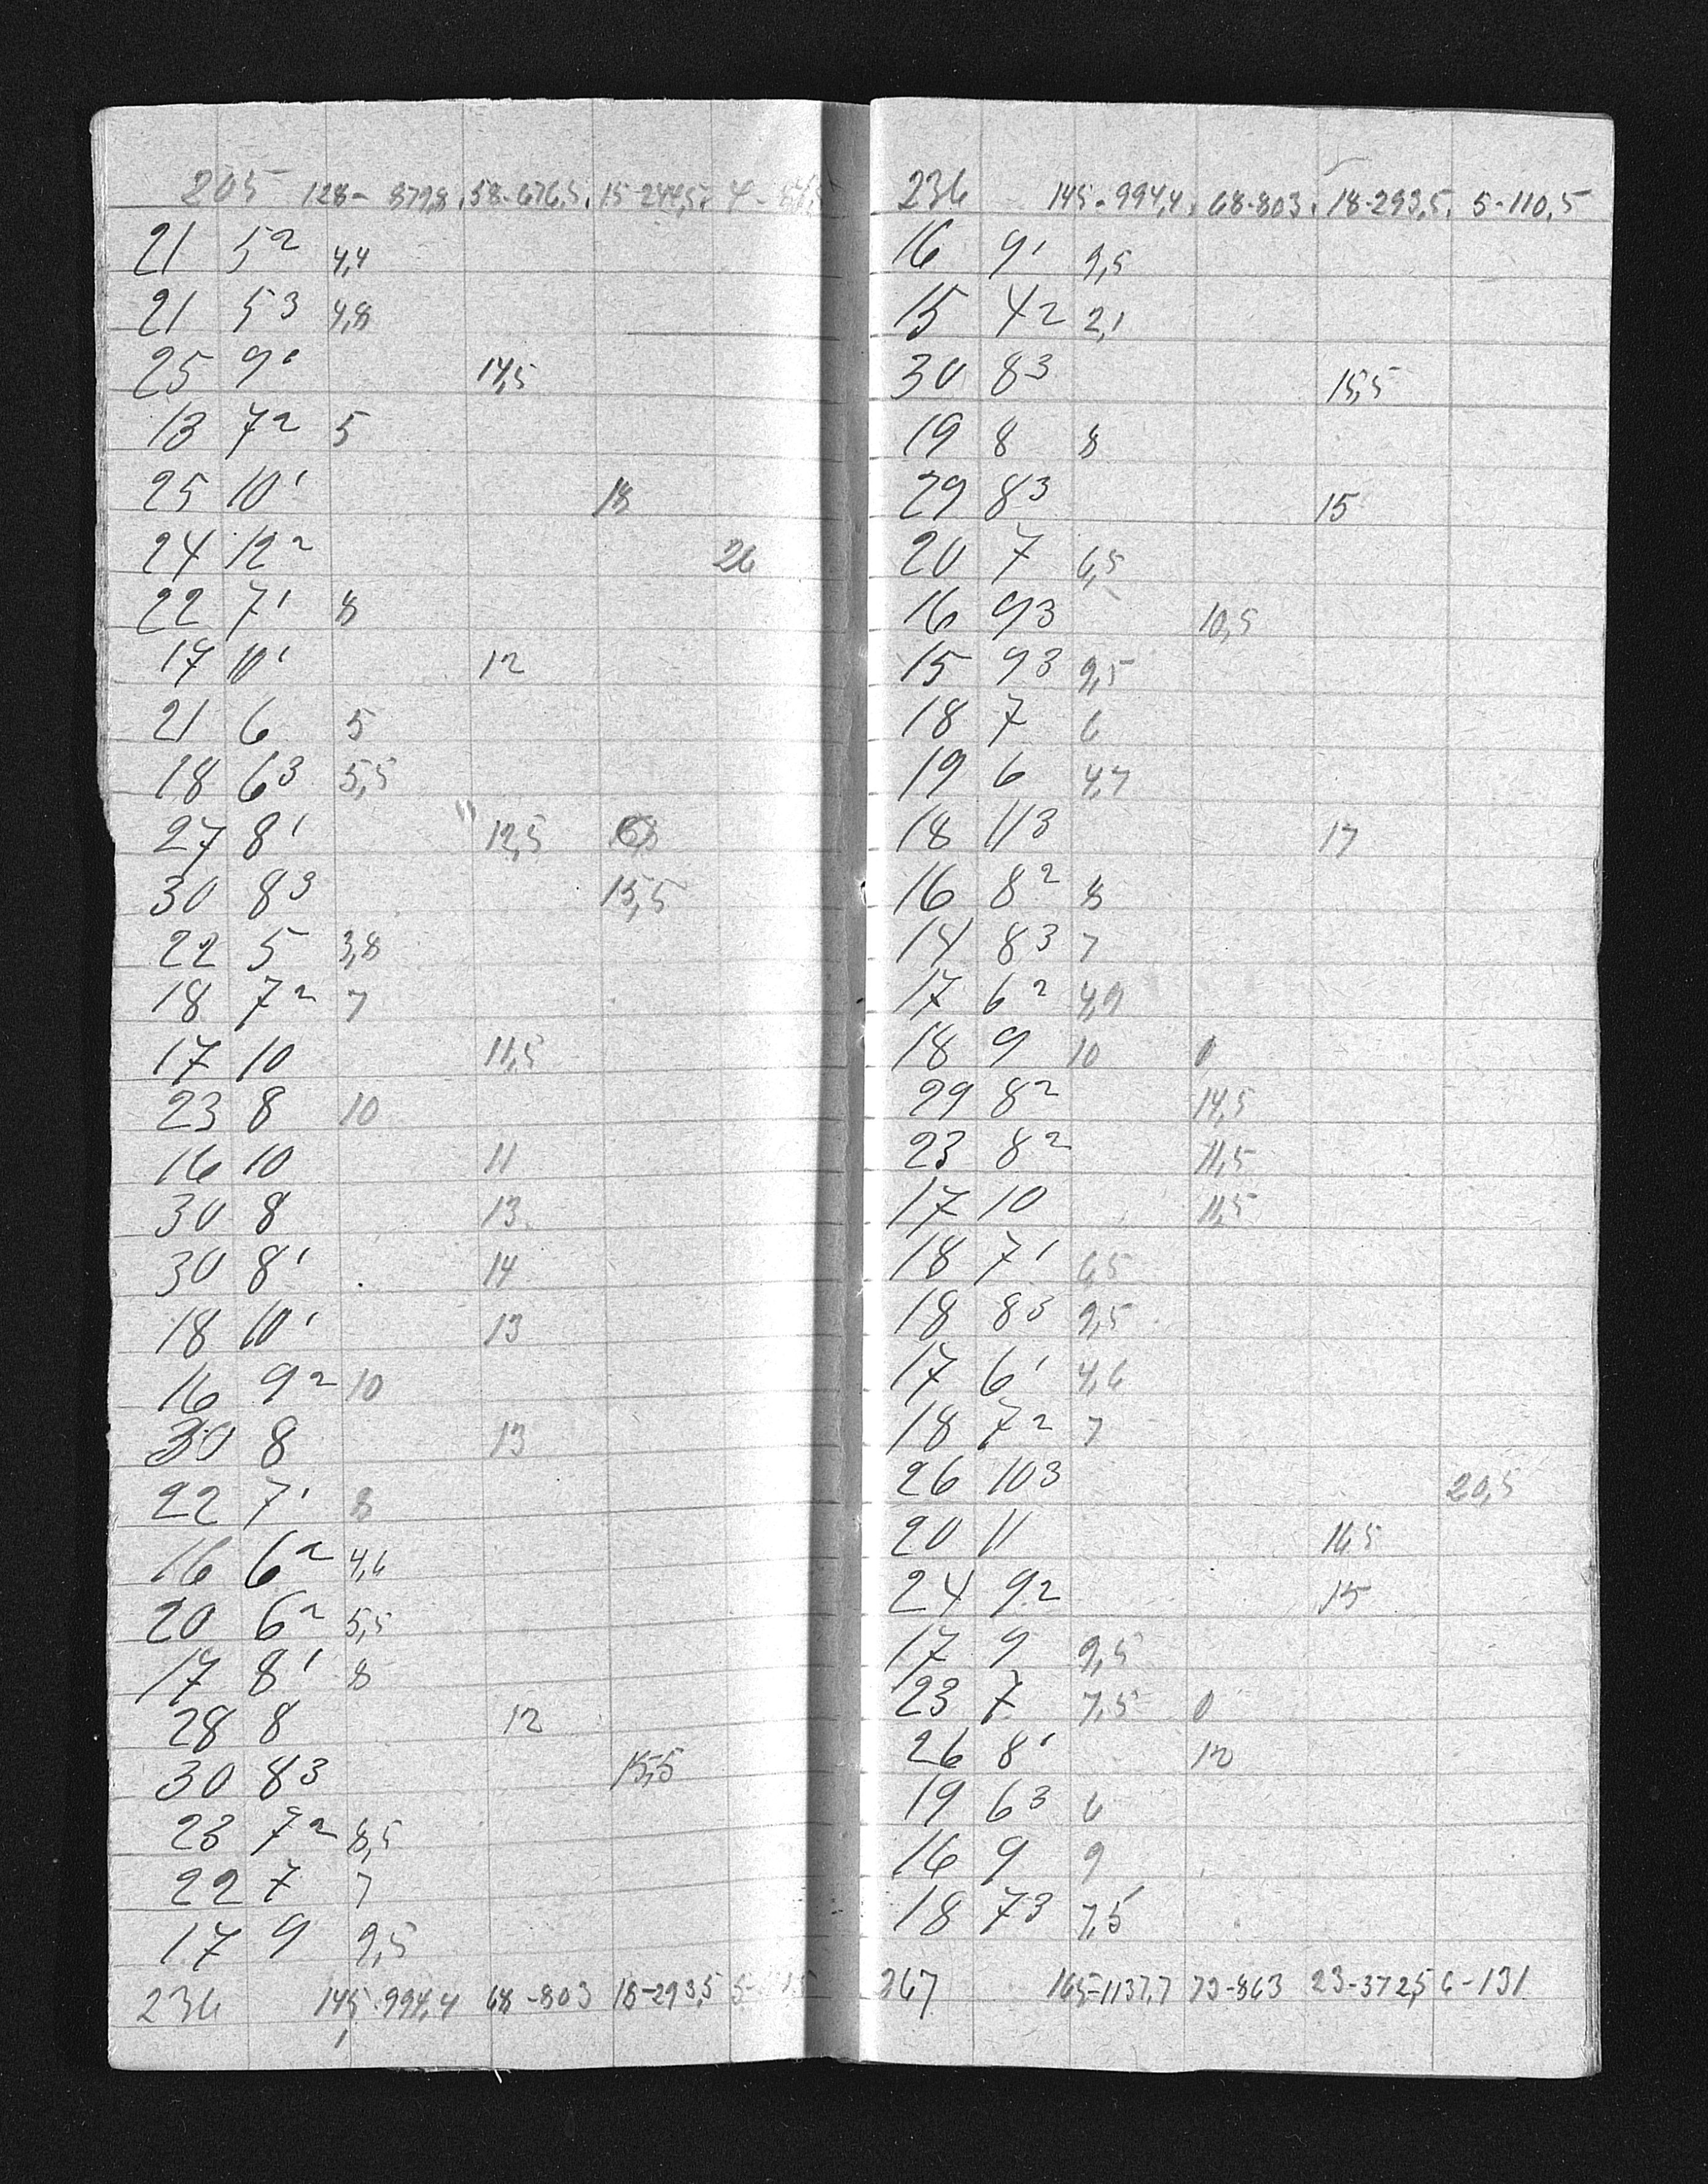 205 128- 879,8. 58-676,5. 15-244,5. 4-
21 5² 4,4
21 5³ 4,8
25 9° 14,5
13 7² 5
25 10' 18
24 12² 26
22 7' 8
17 10' 12
21 6 5
18 6³ 5,5
27 8' 12,5
30 8³ 15,5
22 5 3,8
18 7² 7
17 10 11,5
23 8 10
16 10 11
30 8 13
30 8' 14
18 10' 13
16 9² 10
30 8 13
22 7' 8
16 6² 4,6
20 6² 5,5
17 8' 8
28 8 12
30 83 15,5
23 7² 8,5
22 7 7
17 9 9,5
236 145-994,4 68-803 18-293,5 5-
236 145-994,4. 68-803. 18-293,5. 5-110,5
16 9' 9,5
15 42 2,1
30 83 15,5
19 8 8
29 83 15
20 7 6,5
16 93 10,5
15 93 9,5
18 7 6
19 6 4,7
18 113 17
16 8² 8
14 83 7
17 6² 4,9
18 9 10 0
29 8² 14,5
23 8² 11,5
17 10 11,5
18 7' 6,5
18 83 9,5
17 6' 4,6
18 7² 7
26 103 20,5
20 11 16,5
24 92 15
17 9 9,5
23 7 7,5 0
26 8' 12
19 63 6
16 9 9
18 73 7,5
267 165-1137,7 73-863 23-372,5 6-131